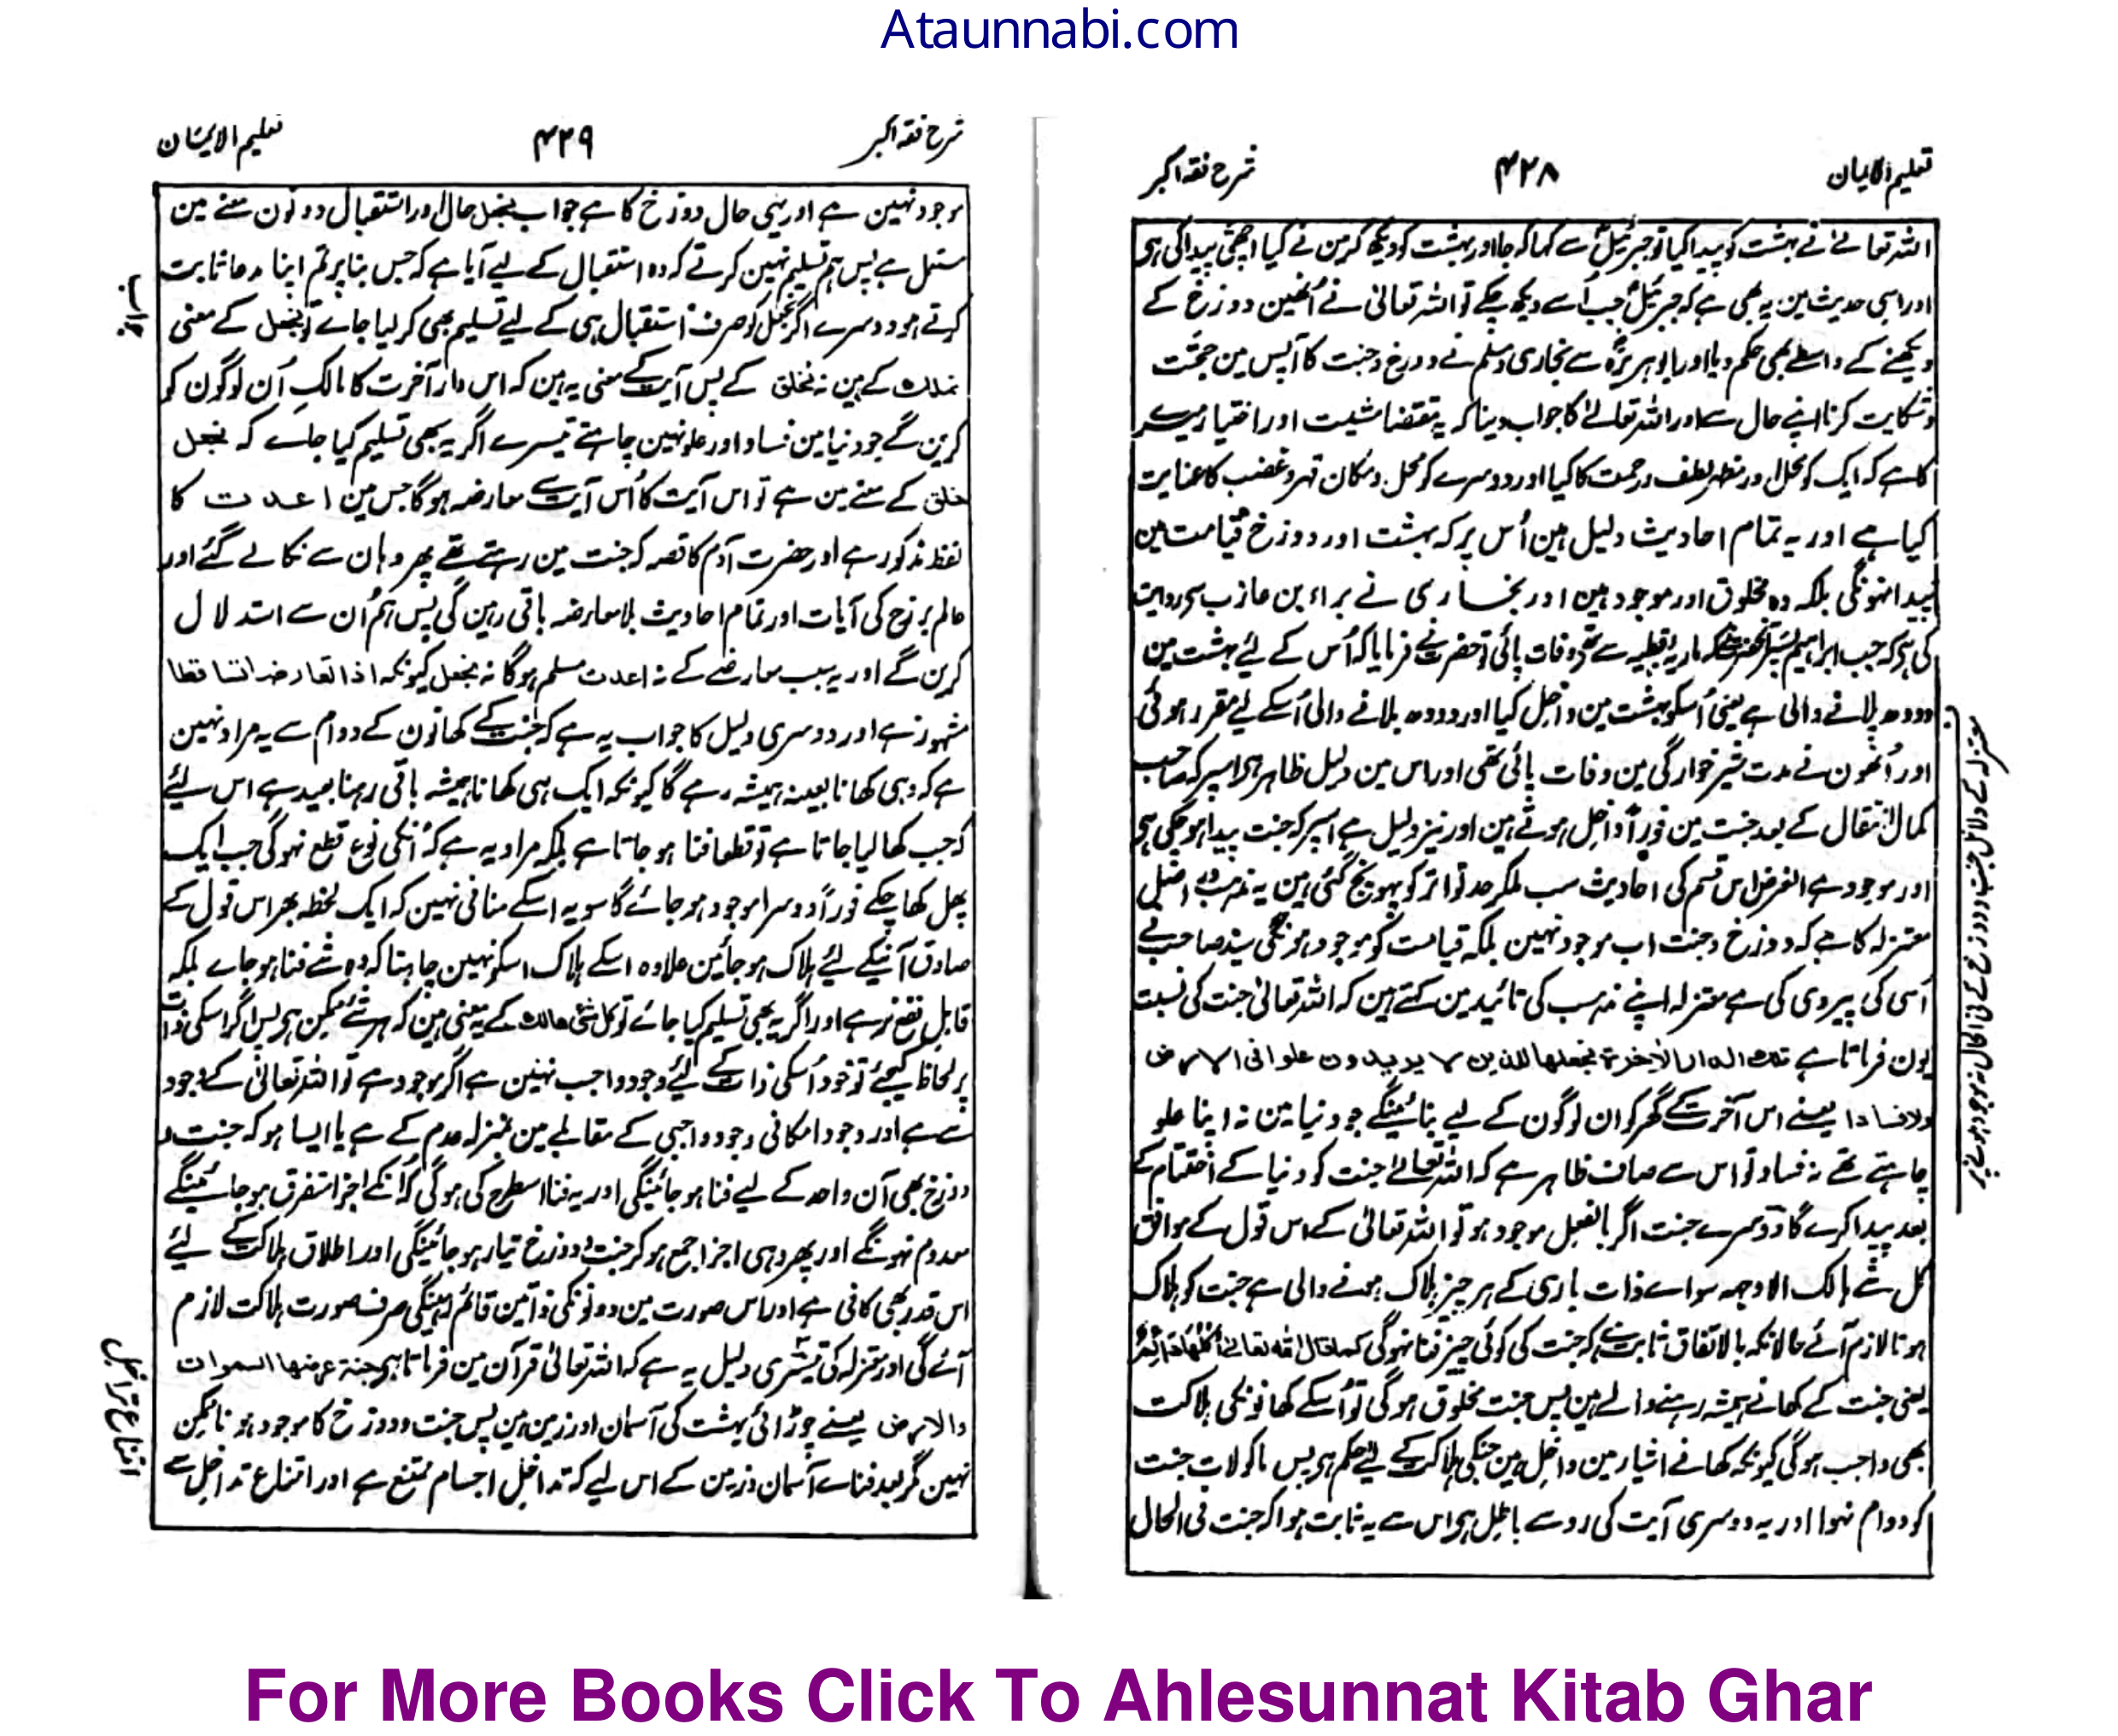 Ataunnabi.com
تعلیم الایمان ۴۲۸ شرح فقہ اکبر
اللہ تعالےٰ نے بہشت کو پیدا کیا تو جبرئیلؑ سے کہا کہ جا اور بہشت کو دیکھ کہ مین نے کیا اچھی پیدا کی ہی
اور اسی حدیث مین یہ بھی ہے کہ جبرئیلؑ جب اُسے دیکھ چکے تو اللہ تعالیٰ نے اُنھین دوزخ کے
دیکھنے کے واسطے بھی حکم دیا اور ابوہریرہؓ سے بخاری ومسلم نے دوزخ وجنت کا آپس مین حجّت
وشکایت کرنا اپنے حال سے اور اللہ تعالےٰ کا جواب دینا کہ یہ مقتضا مشیت اور اختیار میرے
کا ہے کہ ایک کو محل اور مظہر لطف ورحمت کا کیا اور دوسرے کو محل ومکان قہر وغضب کا عنایت
کیا ہے اور یہ تمام احادیث دلیل ہین اُس پر کہ بہشت اور دوزخ قیامت مین
پیدا نہونگی بلکہ وہ مخلوق اور موجود ہین اور بخاری نے براء بن عازب سے روایت
کی ہے کہ جب ابراہیم پسر آنحضرت کہ ماریہ قبطیہ سے تھے وفات پائی تو حضرت نے فرمایا کہ اُس کے لئے بہشت مین
دودھ پلانے والی ہے یعنی اُسکو بہشت مین داخل کیا اور دودھ پلانے والی اُسکے لیے مقرر ہوئی
اور اُنھون نے مدت شیر خوارگی مین وفات پائی تھی اور اس مین دلیل ظاہر ہی اسپر کہ صاحب
کمال انتقال کے بعد جنت مین فوراً داخل ہوتے ہین اور نیز دلیل ہے اسپر کہ جنت پیدا ہو چکی ہی
اور موجود ہے الغرض اس قسم کی احادیث سب ملکر حد تواتر کو پہونچ گئی ہین یہ مذہب
معتزلہ کا ہے کہ دوزخ وجنت اب موجود نہین بلکہ قیامت کو موجود ہونگی سید صاحب نے
اُسی کی پیروی کی ہے معتزلہ اپنے مذہب کی تائید مین کہتے ہین کہ اللہ تعالیٰ جنت کی نسبت
یون فرماتا ہے تلك الدار الاخرة نجعلها للذين لا يريدون علوا فى الارض
ولافسادا یعنے اس آخرت کے گھر کو ان لوگون کے لیے بنائینگے جو دنیا مین نہ اپنا علو
چاہتے تھے نہ فساد تو اس سے صاف ظاہر ہے کہ اللہ تعالےٰ جنت کو دنیا کے اختتام کے
بعد پیدا کرے گا دوسرے جنت اگر بالفعل موجود ہو تو اللہ تعالیٰ کے اس قول کے موافق
کل شے ہالک الا وجہہ سواے ذات باری کے ہر چیز ہلاک ہونے والی ہے جنت کو ہلاک
ہونا لازم آئے حالانکہ بالاتفاق ثابت ہے کہ جنت کی کوئی چیز فنا نہوگی کما قال اللہ تعالیٰ اُكُلُهَا دَائِمٌ
یعنی جنت کے کھانے ہمیشہ رہنے والے ہین پس جنت مخلوق ہوگی تو اُسکے کھانونکی ہلاکت
بھی واجب ہوگی کیونکہ کھانے اشیا رمین داخل ہین جنکی ہلاکت کے لیے حکم ہی پس ماکولات جنت
کو دوام نہوا اور یہ دوسری آیت کی رو سے باطل ہی اس سے یہ ثابت ہوا کہ جنت فی الحال
معتزلہ کے دلائل جنت ودوزخ کے فی الحال نہ موجود ہونے پر
شرح فقہ اکبر ۴۲۹ تعلیم الایمان
موجود نہین ہے اور یہی حال دوزخ کا ہے جواب نجعل حال اور استقبال دونون معنے مین
مستعمل ہے پس ہم تسلیم نہین کرتے کہ وہ استقبال کے لیے آیا ہے کہ جس بنا پر تم اپنا مدعا ثابت
کرتے ہو دوسرے اگر نجعل کو صرف استقبال ہی کے لیے تسلیم بھی کر لیا جاے تو نجعل کے معنی
نملك کے ہین نہ نخلق کے پس آیت کے معنی یہ ہین کہ اس دار آخرت کا مالک اُن لوگون کو
کرین گے جو دنیا مین فساد اور علو نہین چاہتے تیسرے اگر یہ بھی تسلیم کیا جاے کہ نجعل
خلق کے معنے مین ہے تو اس آیت کا اُس آیت سے معارضہ ہوگا جس مین اعدت کا
لفظ مذکور ہے اور حضرت آدم کا قصہ کہ جنت مین رہتے تھے پھر وہان سے نکالے گئے اور
عالم برزخ کی آیات اور تمام احادیث بلا معارضہ باقی رہین گی پس ہم اُن سے استدلال
کرین گے اور یہ سبب معارضے کے نہ اعدت مسلم ہوگا نہ نجعل کیونکہ اذا تعارضا تساقطا
مشہور ہے اور دوسری دلیل کا جواب یہ ہے کہ جنت کے کھانون کے دوام سے یہ مراد نہین
ہے کہ وہی کھانا بعینہ ہمیشہ رہے گا کیونکہ ایک ہی کھانا ہمیشہ باقی رہنا بعید ہے اس لیئے
کہ جب کھا لیا جاتا ہے تو قطعا فنا ہو جاتا ہے بلکہ مراد یہ ہے کہ اُنکی نوع قطع نہوگی جب ایک
پھل کھا چکے فوراً دوسرا موجود ہو جائے گا سو یہ اسکے منافی نہین کہ ایک لحظہ بھر اس قول کے
صادق آنیکے لئے ہلاک ہو جائین علاوہ اسکے ہلاک اسکو نہین چاہتا کہ وہ شے فنا ہو جاے بلکہ
قابل نفع نرہے اور اگر یہ بھی تسلیم کیا جائے تو كل شئ هالك کے یہ معنی ہین کہ ہر شے ممکن ہی پس اگر اسکی ذات
پر لحاظ کیجئے تو خود اُسکی ذات کے لیئے وجود واجب نہین ہے اگر موجود ہے تو اللہ تعالیٰ کے وجود
سے ہے اور وجود امکانی وجود واجبی کے مقابلے مین بمنزلہ عدم کے ہے یا ایسا ہو کہ جنت و
دوزخ بھی آن واحد کے لیے فنا ہو جائینگی اور یہ فنا اسطرح کی ہوگی کہ اُنکے اجزا متفرق ہو جائینگے
معدوم نہونگے اور پھر وہی اجزا جمع ہو کر جنت ودوزخ تیار ہو جائینگی اور اطلاق ہلاکت کے لئے
اس قدر بھی کافی ہے اور اس صورت مین دونونکی ذاتین قائم رہینگی صرف صورت ہلاکت لازم
آئے گی اور معتزلہ کی تیسری دلیل یہ ہے کہ اللہ تعالیٰ قرآن مین فرماتا ہی جنة عرضها السموات
والارض یعنے چوڑائی بہشت کی آسمان اور زمین ہین پس جنت ودوزخ کا موجود ہونا ممکن
نہین مگر بعد فناے آسمان وزمین کے اس لیے کہ تداخل اجسام ممتنع ہے اور امتناع تداخل سے
جواب
امتناع تداخل
For More Books Click To Ahlesunnat Kitab Ghar